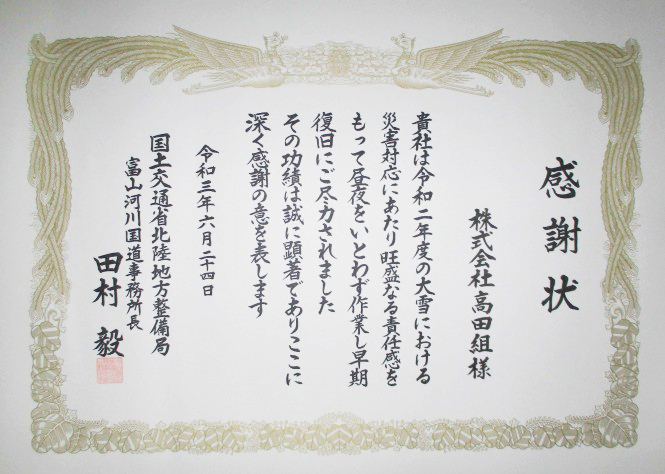 感謝状
株式会社高田組様
貴社は令和二年度の大雪における
災害対応にあたり旺盛なる責任感を
もって昼夜をいとわず作業し早期
復旧にご尽力されました
その功績は誠に顕著でありここに
深く感謝の意を表します
令和三年六月二十四日
国土交通省北陸地方整備局
富山河川国道事務所長
田村毅